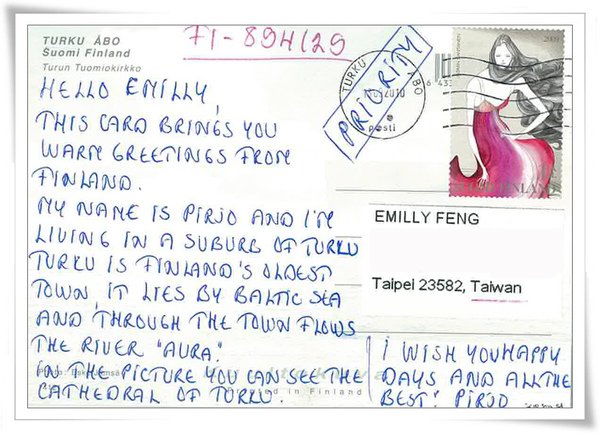 TURKU ÅBO
Suomi Finland
Turun Tuomiokirkko
FI-894129
PRIORITY
TURKU ÅBO
2010
posti
FINLAND
HELLO EMILLY,
THIS CARD BRINGS YOU
WARM GREETINGS FROM
FINLAND.
MY NAME IS PIRJO AND I'M
LIVING IN A SUBURB OF TURKU
TURKU IS FINLAND'S OLDEST
TOWN, IT LIES BY BALTIC SEA
AND THROUGH THE TOWN FLOWS
THE RIVER "AURA".
IN THE PICTURE YOU CAN SEE THE
CATHEDRAL OF TURKU.
in Finland
EMILLY FENG
Taipei 23582, Taiwan
I WISH YOU HAPPY
DAYS AND ALL THE
BEST! PIRJO